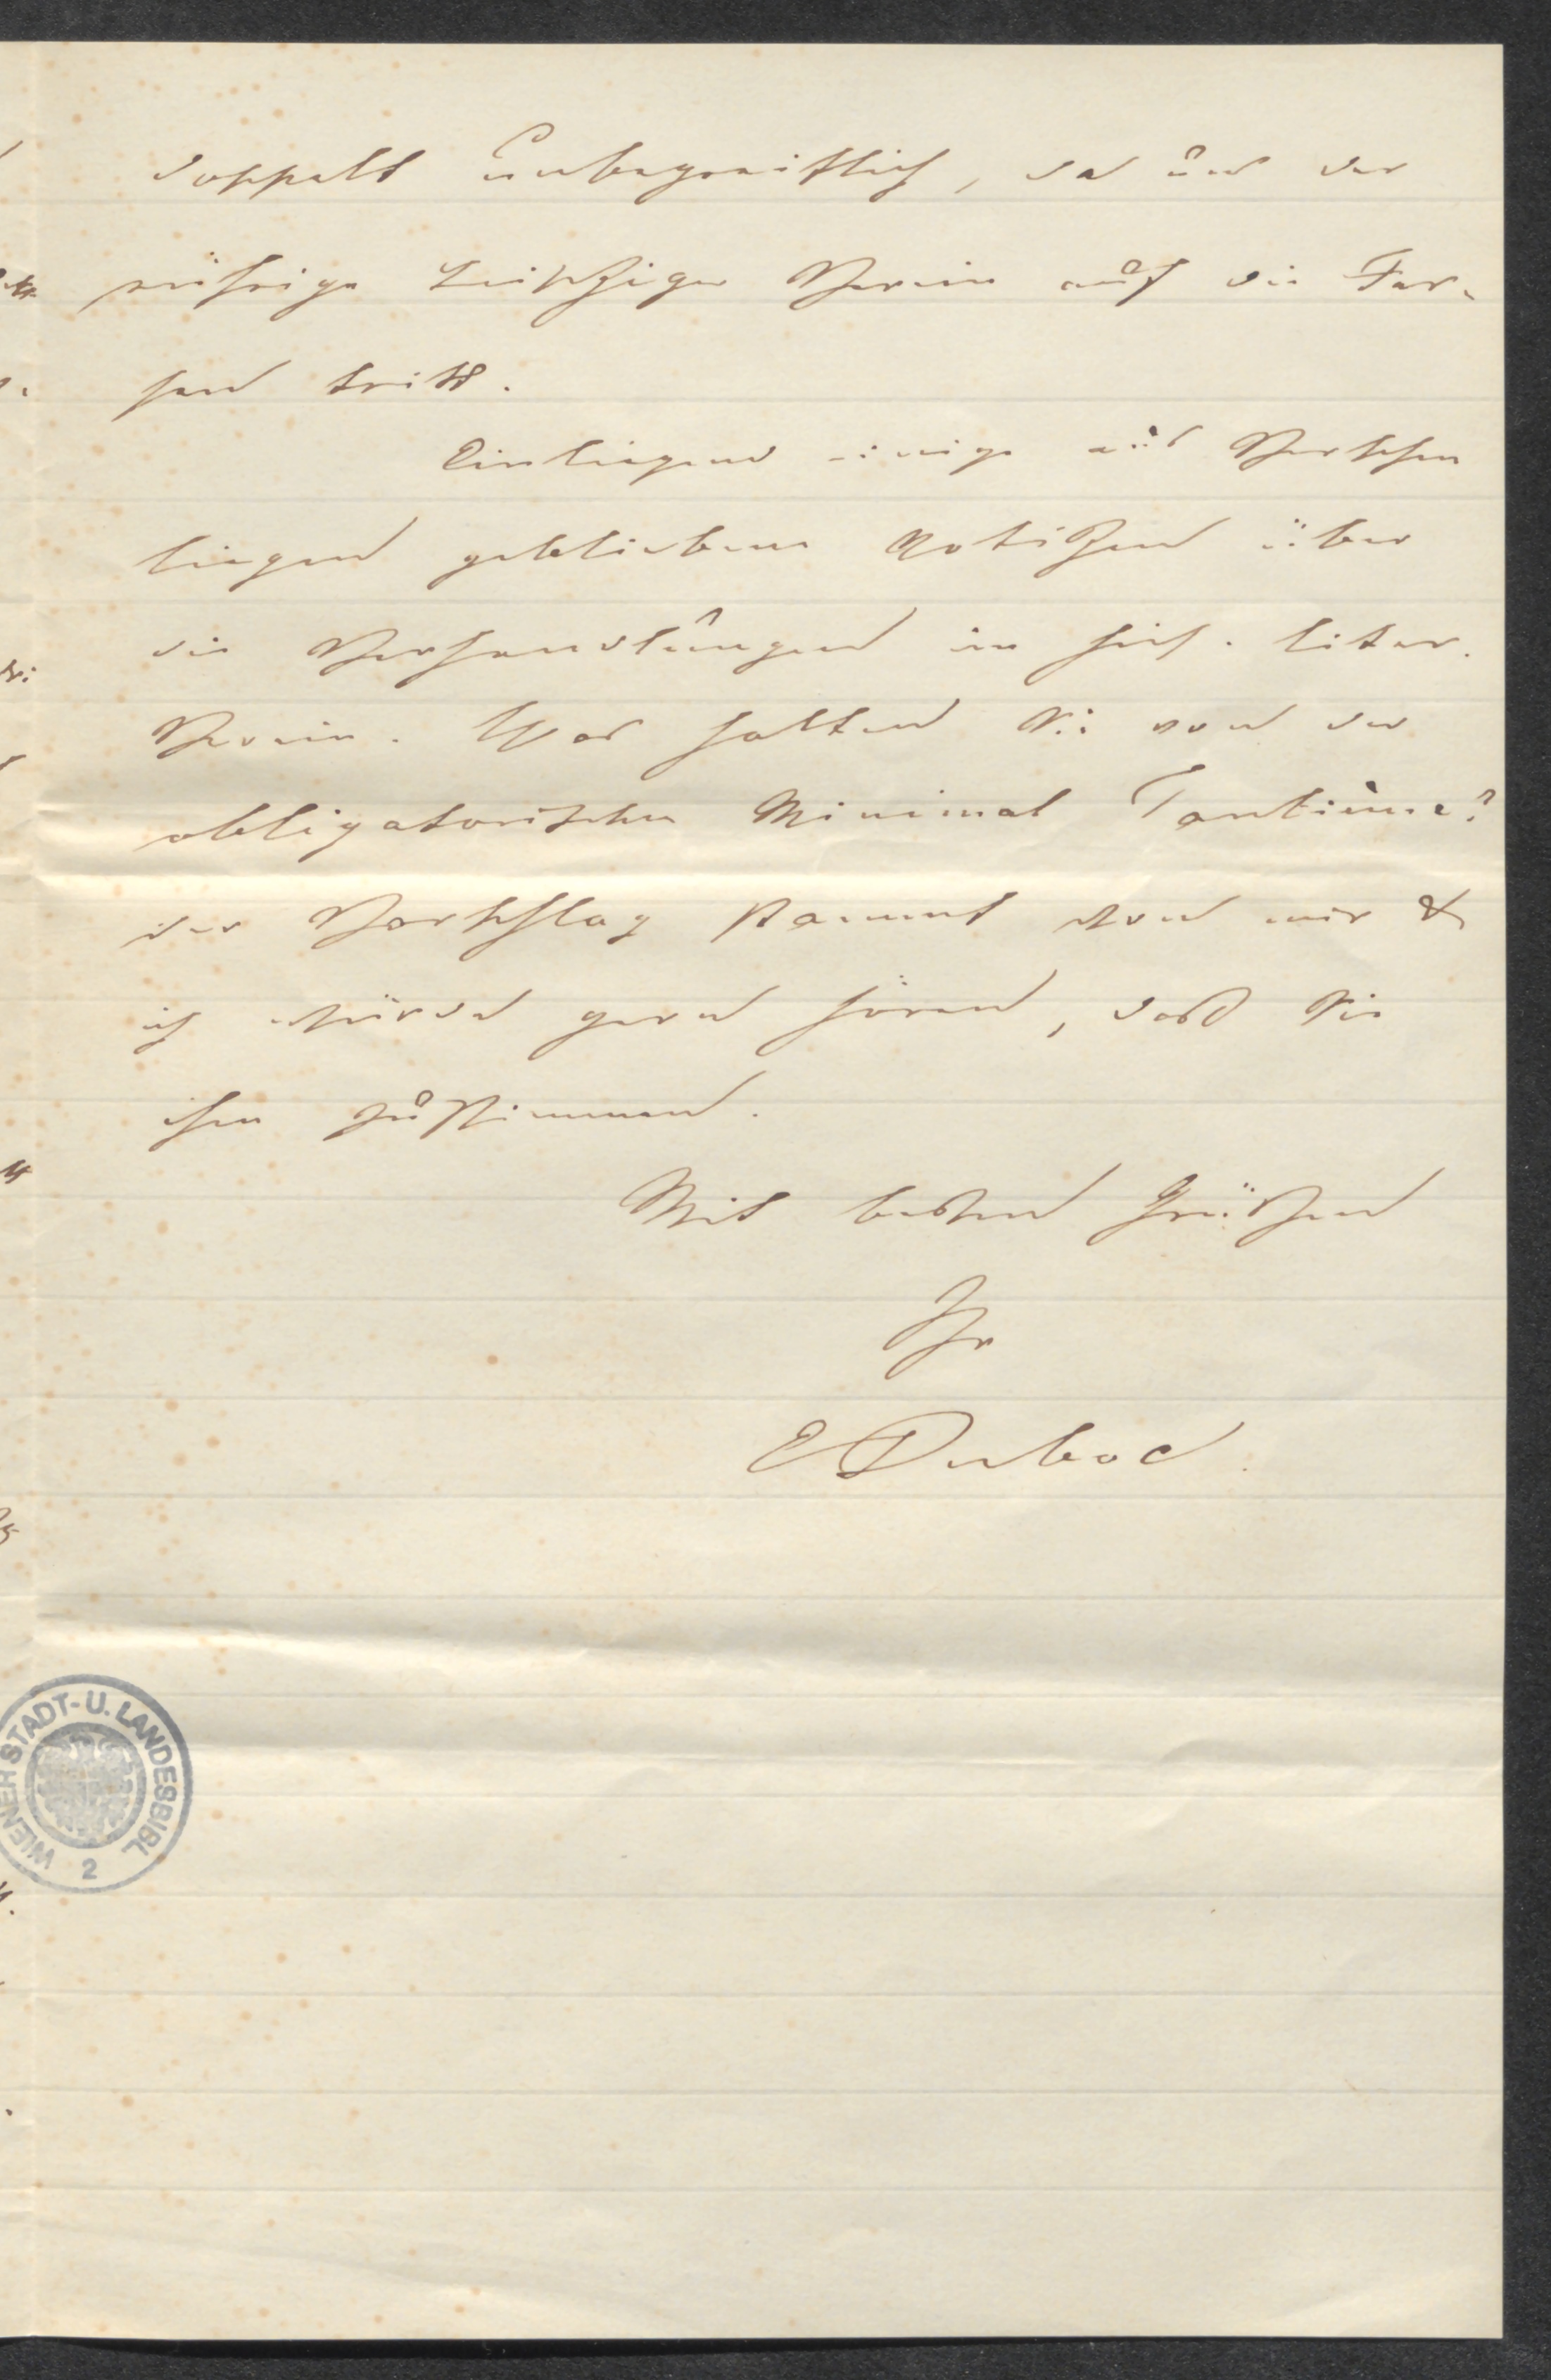 doppelt unbegreiflich, da uns der
rührige Leipziger Verein auf die Fer-
sen tritt.
Einliegend einige aus Versehen
liegen gebliebene Notizen über
die Verhandlungen im hies. liter.
Verein. Was halten Sie von der
obligatorischen Minimal Tantième?
der Vorschlag stammt von mir &
ich würde gern hören, daß Sie
ihm zustimmen.
Mit besten Grüßen
Ihr
E Duboc.
WIENER STADT-U. LANDESBIBL
2